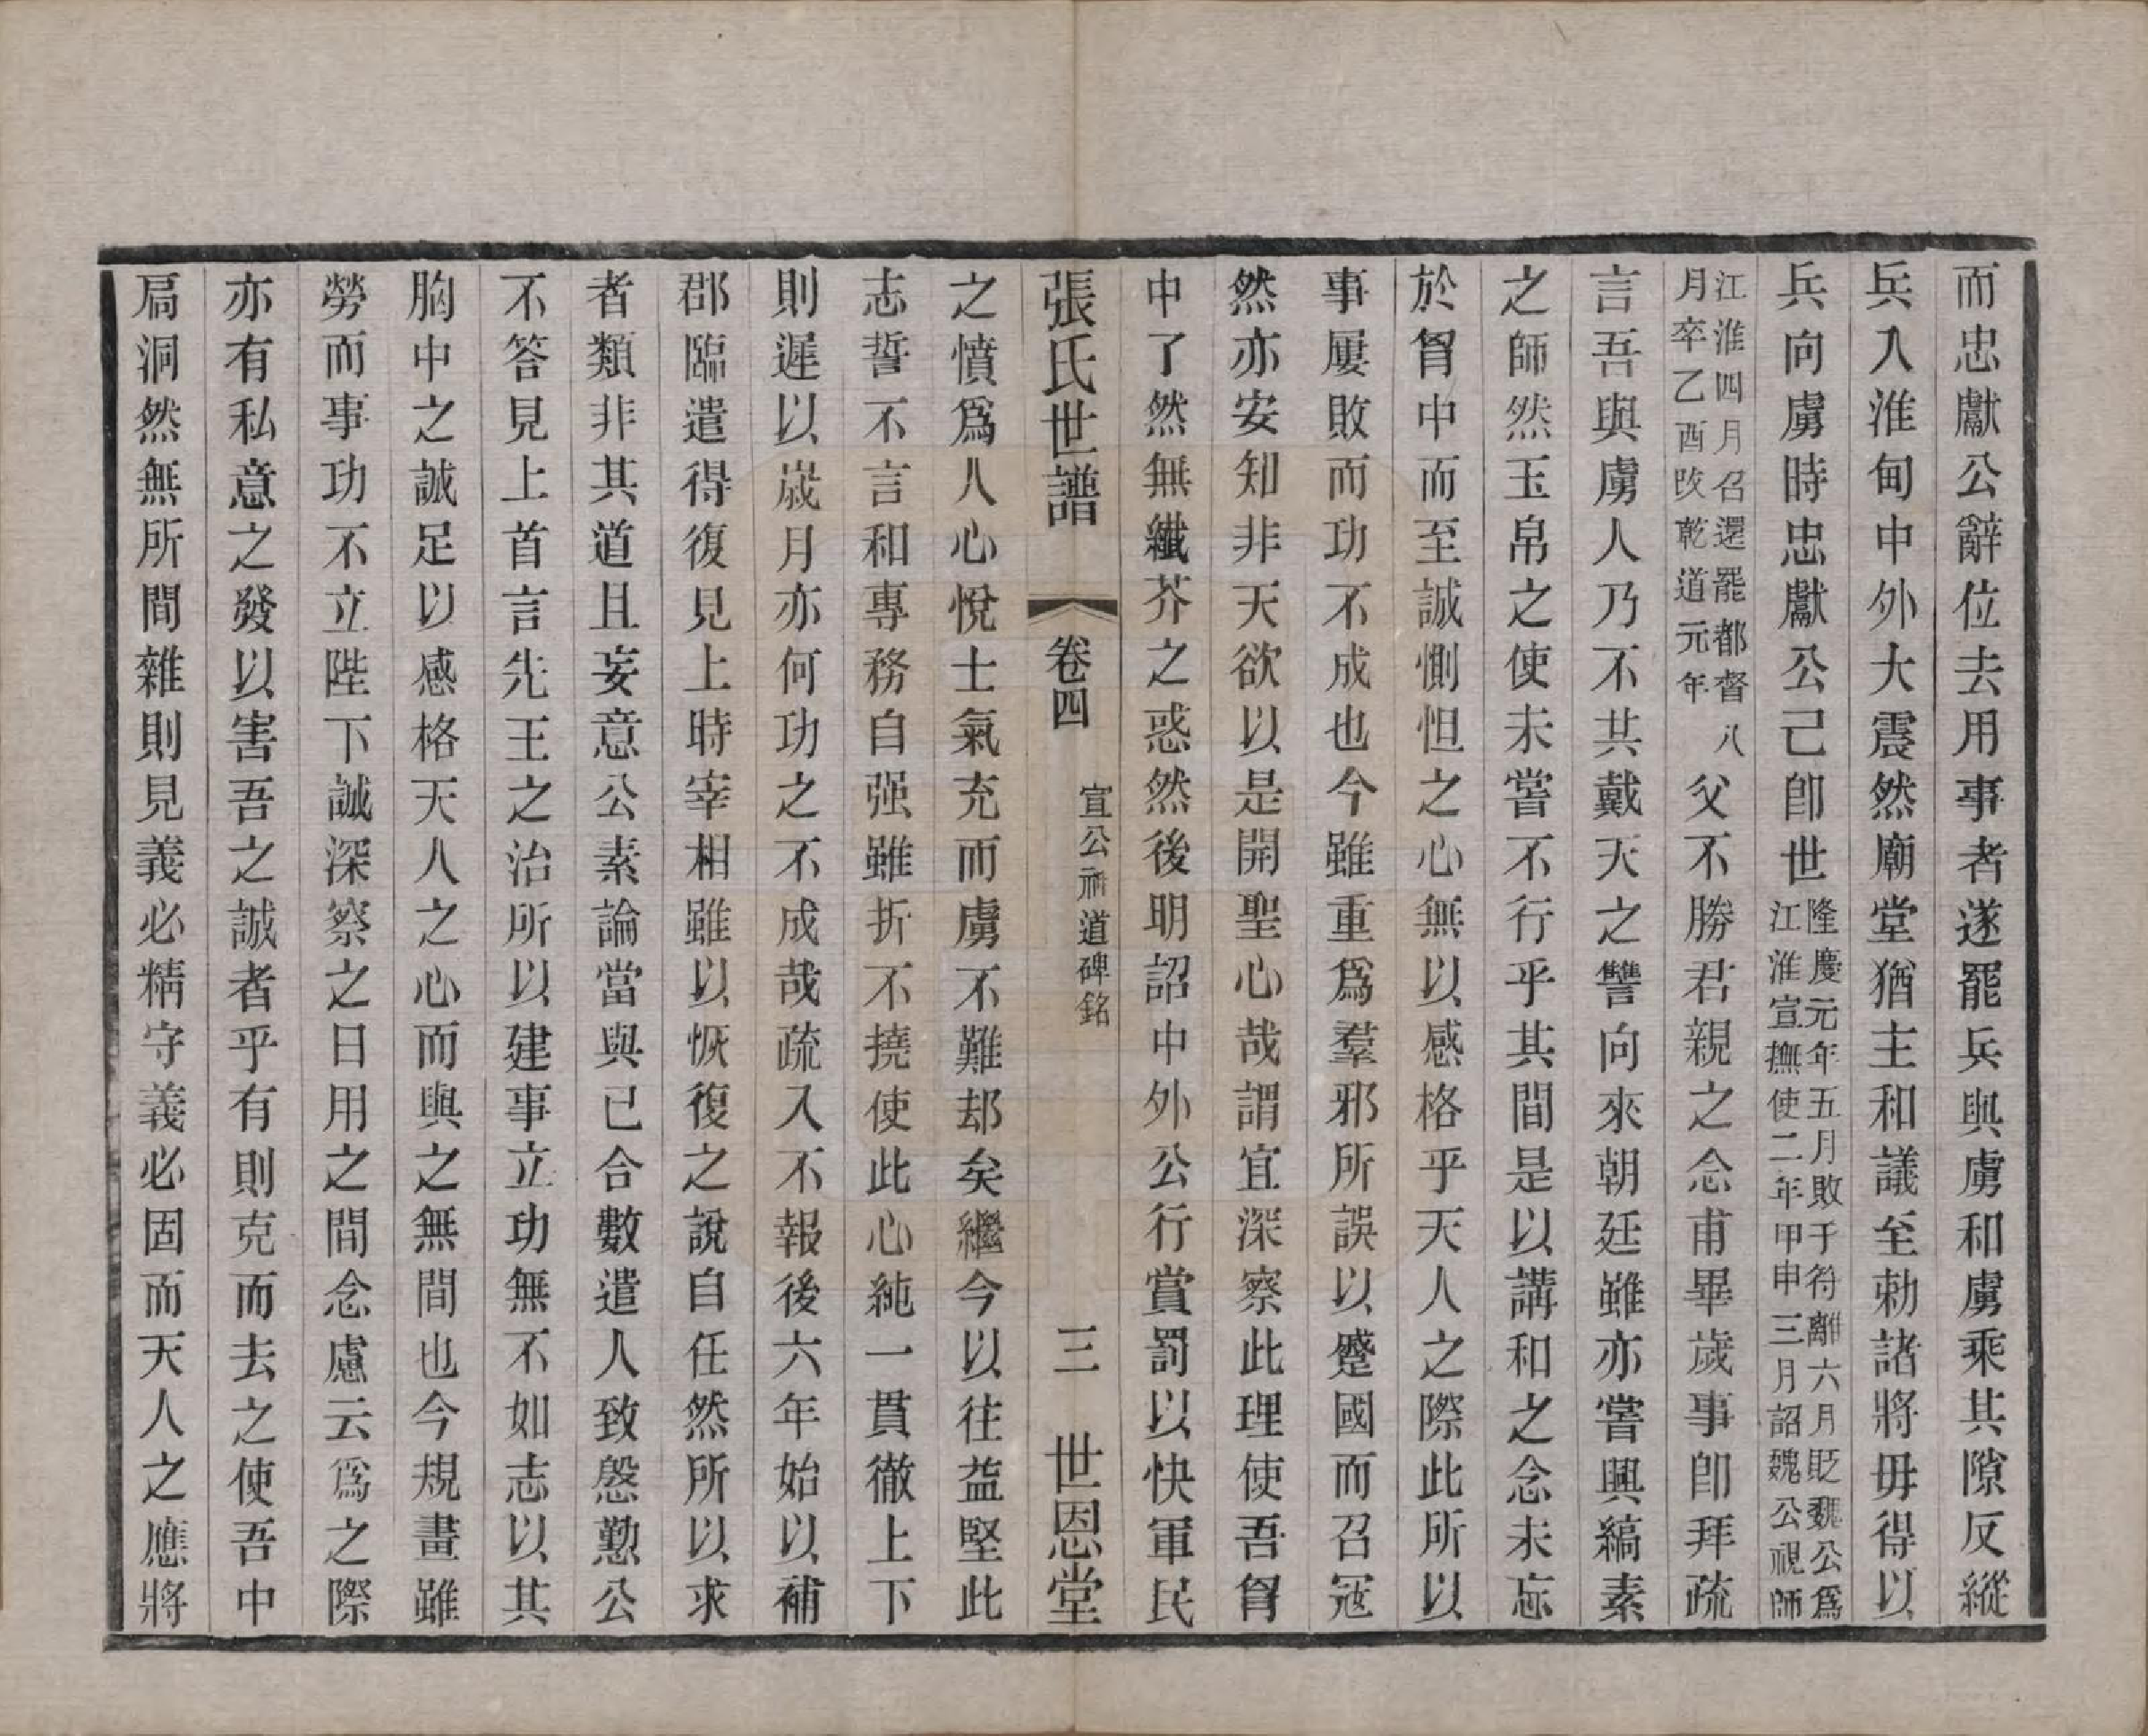 而忠獻公辭位去用事者遂罷兵與虜和虜乘其隙反縱
兵入淮甸中外大震然廟堂猶主和議至勅諸將毋得以
兵向虜時忠獻公己卽世隆慶元年五月敗于符離六月貶魏公爲江淮宣撫使二年甲申三月詔魏公視師
江淮四月召還罷都督八月卒乙酉改乾道元年父不勝君親之念甫畢歲事卽拜疏
言吾與虜人乃不共戴天之讐向來朝廷雖亦嘗興縞素
之師然玉帛之使未嘗不行乎其間是以講和之念未忘
於胷中而至誠惻怛之心無以感格乎天人之際此所以
事屢敗而功不成也今雖重爲羣邪所誤以蹙國而召冦
然亦安知非天欲以是開聖心哉謂宜深察此理使吾胷
中了然無纖芥之惑然後明詔中外公行賞罰以快軍民
張氏世譜 卷四 宣公神道碑銘 三 世恩堂
之憤爲人心悅士氣充而虜不難却矣繼今以往益堅此
志誓不言和專務自强雖折不撓使此心純一貫徹上下
則遲以歲月亦何功之不成哉疏入不報後六年始以補
郡臨遣得復見上時宰相雖以恢復之說自任然所以求
者類非其道且妄意公素論當與已合數遣人致慇懃公
不答見上首言先王之治所以建事立功無不如志以其
胸中之誠足以感格天人之心而與之無間也今規畫雖
勞而事功不立陛下誠深察之日用之間念慮云爲之際
亦有私意之發以害吾之誠者乎有則克而去之使吾中
扃洞然無所間雜則見義必精守義必固而天人之應將